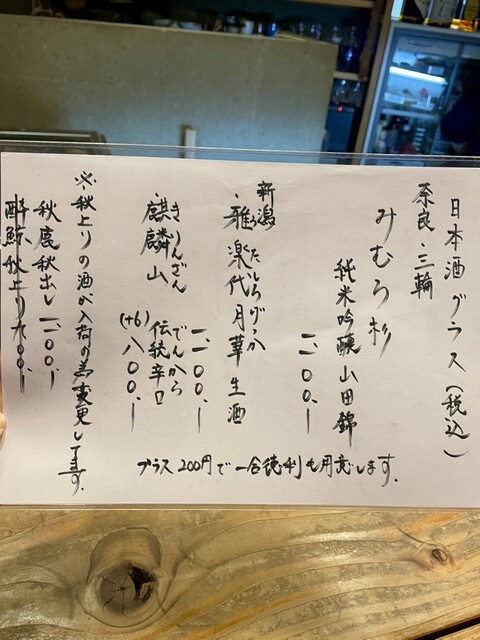 日本酒グラス(税込)
奈良・三輪
みむろ杉
純米吟醸山田錦
一、一〇〇.-
新潟
うたしろげっか
雅楽代月華生酒
一、一〇〇.-
きりんざん
麒麟山
でんから
伝統辛口
(+6)八〇〇.-
※秋上りの酒が入荷の為変更してます.
秋鹿秋出し一、一〇〇.-
酔鯨秋上り九〇〇.-
プラス200円で一合徳利も用意します.